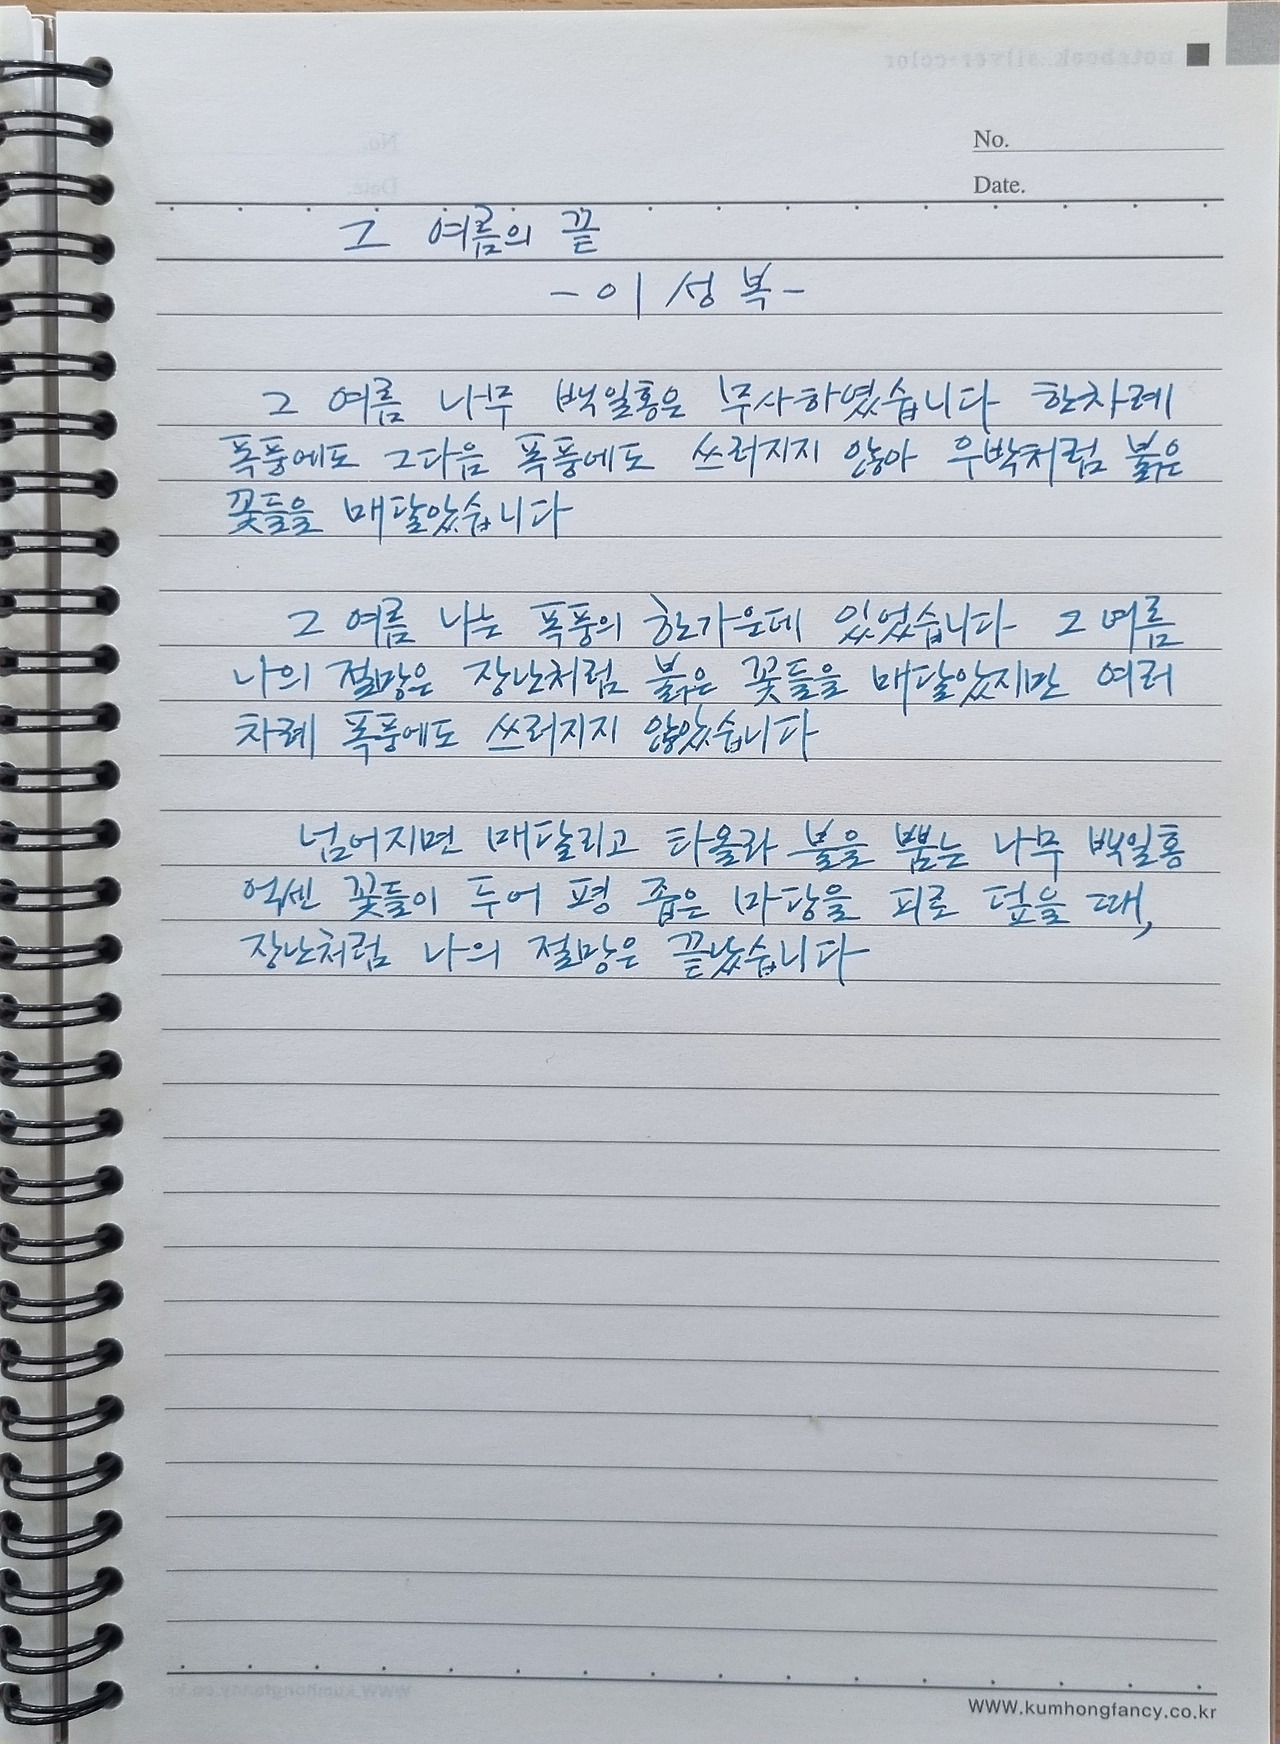 notebook silver-color
No.
Date.
그 여름의 끝
-이성복-
그 여름 나무 백일홍은 무사하였습니다 한차례
폭풍에도 그다음 폭풍에도 쓰러지지 않아 우박처럼 붉은
꽃들을 매달았습니다
그 여름 나는 폭풍의 한가운데 있었습니다 그 여름
나의 절망은 장난처럼 붉은 꽃들을 매달았지만 여러
차례 폭풍에도 쓰러지지 않았습니다
넘어지면 매달리고 타올라 불을 뿜는 나무 백일홍
억센 꽃들이 두어 평 좁은 마당을 피로 덮을 때,
장난처럼 나의 절망은 끝났습니다
www.kumhongfancy.co.kr